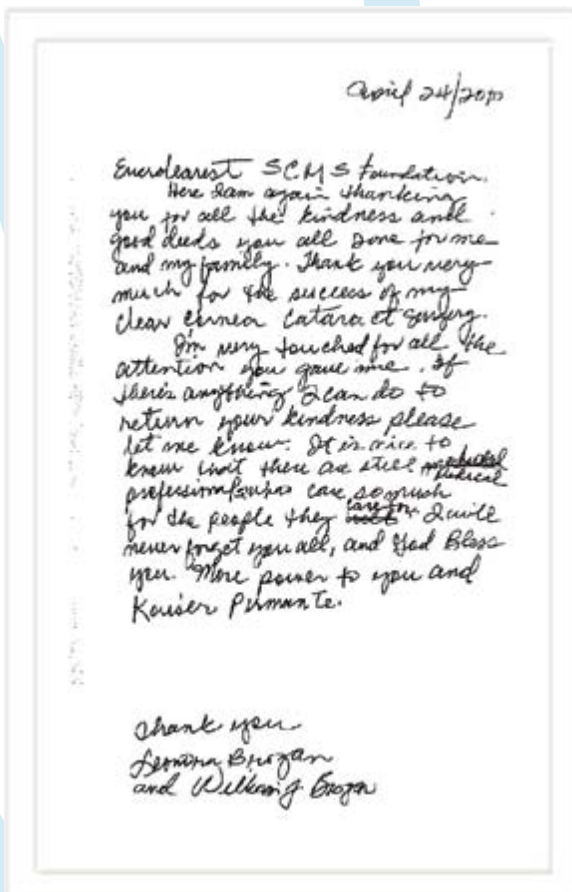 April 24/20
SCMS Foundation.
Here I am again thanking
you for all the kindness and
good deeds you all done for me
and my family. Thank you very
much for the success of my
clear cornea Cataract Surgery.
I'm very touched for all the
attention you gave me. If
there's anything I can do to
return your kindness please
let me know. It is nice to
know that there are still
medical
professionals who care so much
for the people they care for. I will
never forget you all, and God Bless
you. More power to you and
Kaiser Permante.
Thank you
Brogan
and Brogan